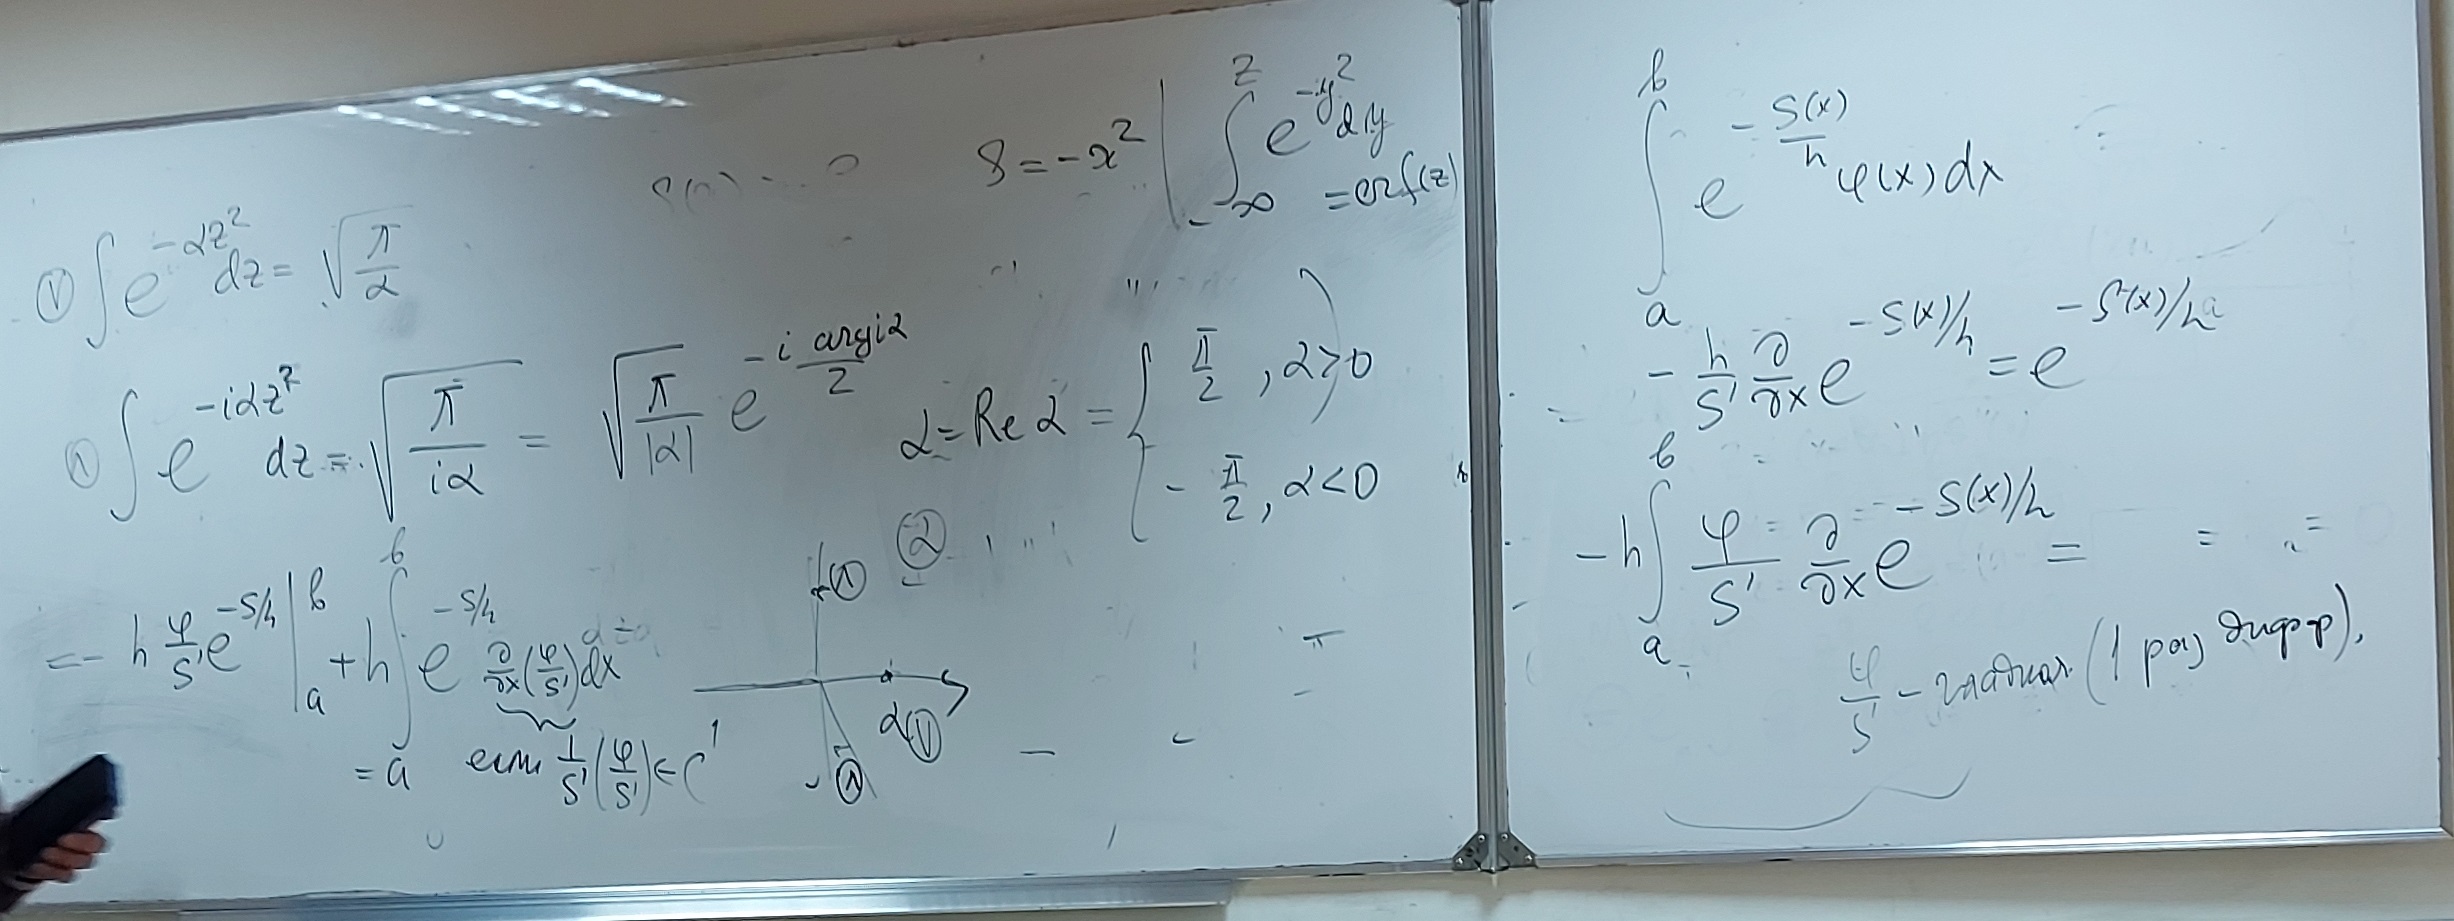 S = -x² | ∫_{-∞}^{z} e^{-y²} dy = erf(z)
① ∫ e^{-αz²} dz = √(π/α)
① ∫ e^{-iαz²} dz = √(π/(iα)) = √(π/|α|) e^{-i arg iα/2}
α = Re α = { π/2, α > 0
- π/2, α < 0
②
= - h φ/S' e^{-S/h} |_a^b + h ∫_a^b e^{-S/h} ∂/∂x (φ/S') dx
= если 1/S' (φ/S') ∈ C¹
① α ① ①
∫_a^b e^{-S(x)/h} φ(x) dx
- h/S' ∂/∂x e^{-S(x)/h} = e^{-S(x)/h}
-h ∫_a^b φ/S' ∂/∂x e^{-S(x)/h} =
φ/S' - гладкая (1 раз дифф-р).